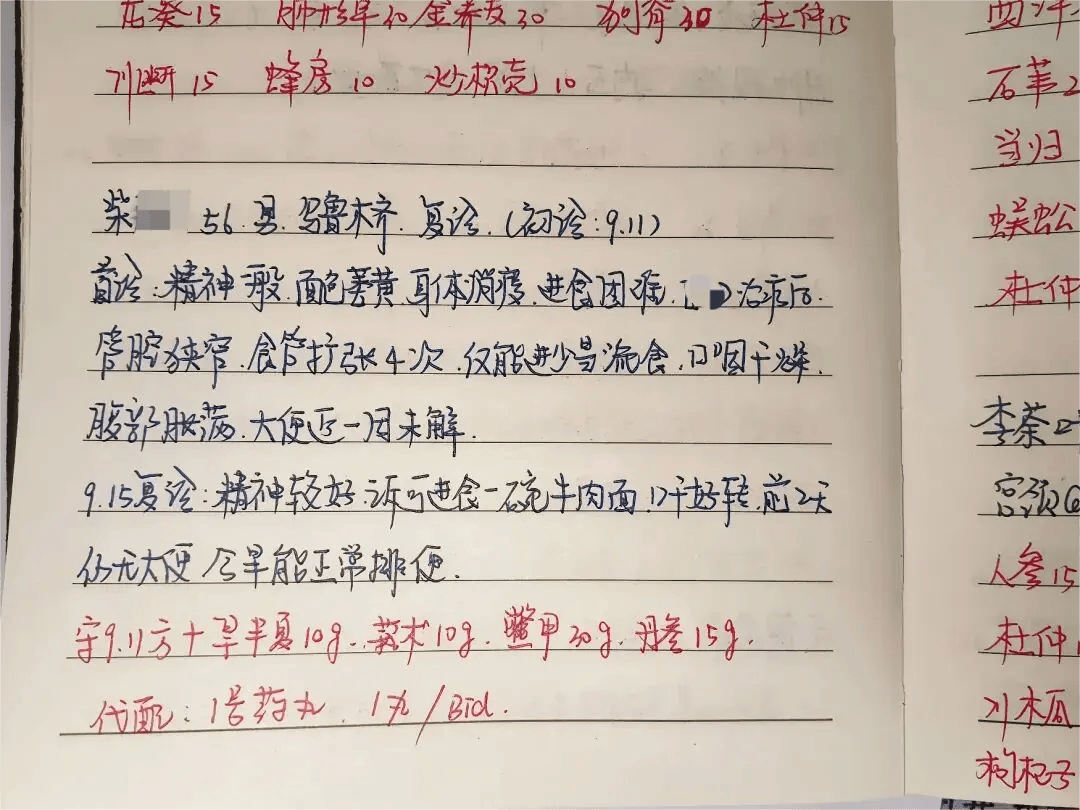 石葵15 卵形草30 金养麦30 狗脊30 杜仲15
川断15 蜂房10 炒枳壳10
柴 56.男.乌鲁木齐.复诊.(初诊:9.11)
首诊:精神一般.面色萎黄.身体消瘦.进食困难. 治疗后.
管腔狭窄.食管扩张4次.仅能进少量流食.口咽干燥.
腹部胀满.大便近一周未解.
9.15复诊:精神较好.诉可进食一碗牛肉面.口干好转.前2天
仍无大便 今早能正常排便.
守9.11方+旱半夏10g.莪术10g.鳖甲30g.丹参15g.
代配:1号药丸.1丸/Bid.
西洋
石苇2
当归
蜈蚣
杜仲
李荣
人参15
杜仲1
川木瓜
枸杞子